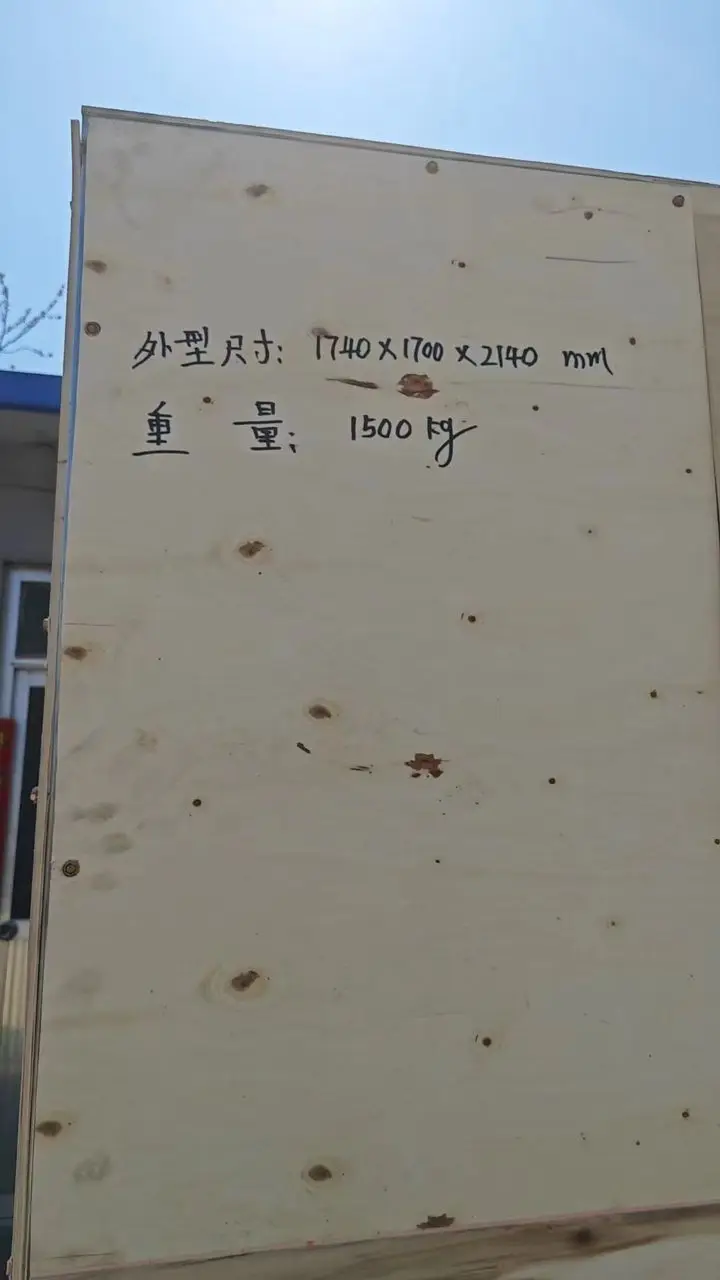 外型尺寸: 1740×1700×2140 mm
重量: 1500 kg